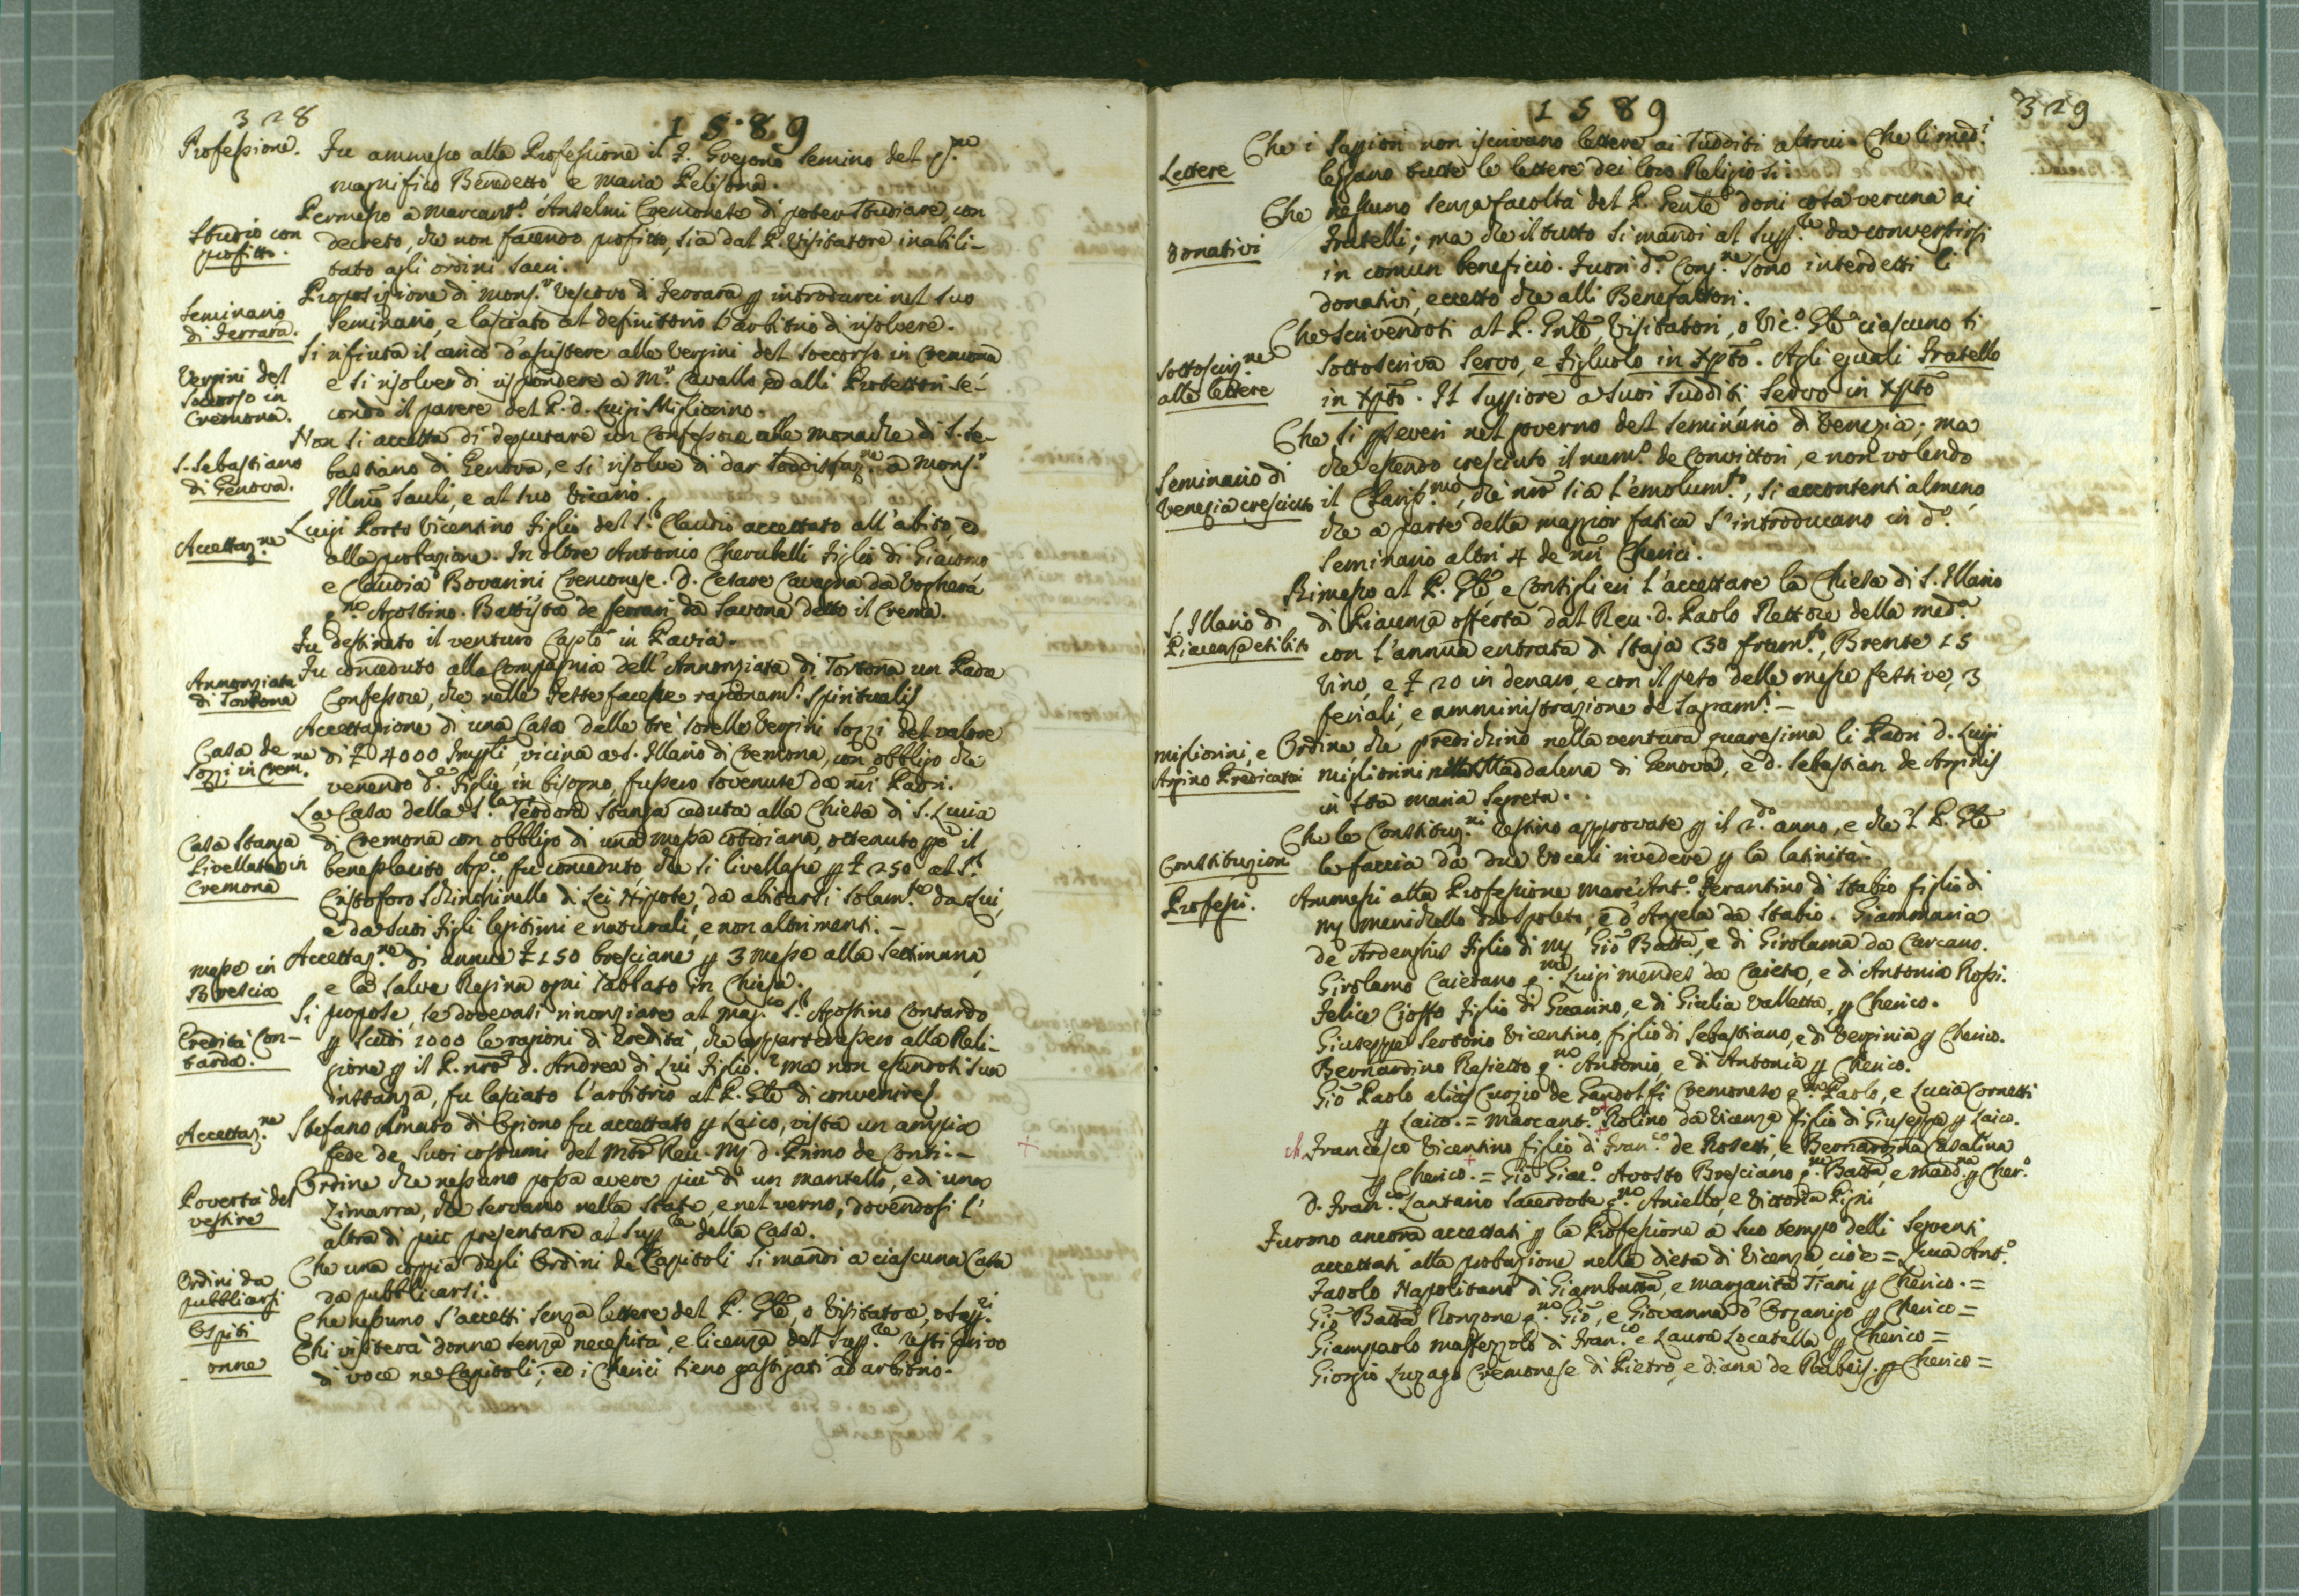 328
1589
Professione. Fu ammesso alla Professione il F. Gregorio Semino del q.m
magnifico Benedetto e Maria Pelisona.
Studio con profitto. Permesso a Marcant.o Anselmi Cremonese di poter studiare, con
decreto, che non facendo profitto, sia dal P. Visitatore inabili-
tato agli ordini sacri.
Seminario di Ferrara. Proposizione di Mons.r Vescovo di Ferrara p introdurci nel suo
Seminario, e lasciato al definitorio l'arbitrio di risolvere.
Vergini del Soccorso in Cremona. Si rifiuta il carico d'assistere alle Vergini del Soccorso in Cremona
e si risolve di rispondere a M.r Cavallo, ed alli Protettori se-
condo il parere del P. d. Luigi Migliorino.
S. Sebastiano di Genova. Non si accetta di deputare un Confessore alle monache di S. Se-
bastiano di Genova, e si risolve di dar soddisfaz.ne a Mons.r
Illmo Sauli, e al suo Vicario.
Accettaz.ne Luigi Porto Vicentino figlio del S.r Claudio accettato all'abito, ed
alla probazione. In oltre Antonio Cherubelli figlio di Giacomo
e Claudia Bovarini Cremonese. D. Cesare Cavagna da Voghera
q.m Agostino. Battista de ferrari da Savona detto il Crema.
Fu destinato il venturo Caplo in Pavia.
Annonziata di Tortona Fu conceduto alla Compagnia dell'Annonziata di Tortona un Padre
Confessore, che nelle feste facesse ragionam.ti spirituali
Casa de Sozzi in Crem.na Accettazione di una Casa delle tre sorelle Vergini Sozzi del valore
di £ 4000 Imp.li, vicina a S. Illario di Cremona, con obbligo che
venendo d.e figlie in bisogno, fussero sovenute da nri Padri.
Casa Stanga Livellata in Cremona La Casa della S.ra Teodora Stanga caduta alla Chiesa di S. Lucia
di Cremona con obbligo di una messa cotidiana, ottenuto p.o il
beneplacito Ap.co, fu conceduto, che si livellasse p £ 250 al S.r
Cristoforo Schinchinello di Lei Nipote, da abitarsi solam.te da Lui,
e da suoi figli legitimi e naturali, e non altrimenti. -
Messe in Brescia Accettaz.ne di annue £ 150 bresciane p 3 messe alla Settimana,
e la Salve Regina ogni Sabbato in Chiesa.
Eredità Con- tarda. Si propose, se dovevasi rinonziare al Mag.co S.r Agostino Contardo
p scudi 1000 le ragioni di Eredità, che appartenessero alla Reli-
gione p il P. nro d. Andrea di Lui figlio. Ma non essendosi sua
instanza, fu lasciato l'arbitrio al P. Gle di convenire.
Accettaz.ne Stefano Amato di Opiono fu accettato p Laico, vista un ampia
fede de suoi costumi del Mto Reu. M.r d. Primo de Conti. -
Povertà del vestire Ordine che nessuno possa avere più di un mantello, ed una
Zimarra, che servano nella State, e nel verno, dovendosi l'
altra di più presentare al Supp.re della Casa.
Ordini da pubblicarsi Che una coppia degli Ordini de Capitoli si mandi a ciascuna Casa
da pubblicarsi.
Ospiti Che nessuno s'accetti senza lettere del P. Gle, o Visitatore, o Supp.ri
onne Chi visiterà donne senza necessità, e licenza del Supp.re resti privo
di voce ne Capitoli; ed i Cherici sieno gastigati ad arbitrio.
1589
329
Lettere Che i Suppriori non iscrivano lettere ai Sudditi altrui. Che li med.i
leggano tutte le lettere dei loro Religiosi.
Donativi Che nessuno senza facoltà del P. Genle doni cosa veruna ai
Fratelli; ma che il tutto si mandi al Supp.re da convertirsi
in comun beneficio. Fuori d.a Cong.ne sono interdetti li
donativi, eccetto che alli Benefattori.
Sottoscriz.ne alle lettere Che scrivendosi al P. Gnle, Visitatori, o Vic.o Gle ciascuno si
sottoscriva Servo, e Figliuolo in Xpto. Agli eguali Fratello
in Xpto. Il Suppiore a suoi Sudditi Servo in Xpto
Seminario di Venezia cresciuto Che si pseveri nel governo del Seminario di Venezia; ma
che essendo cresciuto il num.o de Convittori, e non volendo
il Clariss.mo, che nro sia l'emolum.to, si accontenti almeno,
che a parte della maggior fatica s'introducano in d.o
Seminario altri 4 de nri Cherici.
S. Illario di Piacenza esibito Rimesso al P. Gle e Consiglieri l'accettare la Chiesa di S. Illario
di Piacenza offerta dal Reu. d. Paolo Rettore della med.a
con l'annua entrata di Staja 30 frum.to, Brente 15
Vino, e £ 20 in denaro, e con il peso delle messe festive, 3
feriali, e amministrazione de Sagram.ti -
Migliorini, e Arpino Predicatori Ordine, che predichino nella ventura quaresima li Padri d. Luigi
Migliorini nella Maddalena di Genova, e d. Sebastian de Arpinis
in Sta Maria Segreta.
Constituzioni Che le Constituz.ni restino approvate p il 2.do anno, e che 'l P. Gle
le faccia da due Vocali rivedere p la latinità.
Professi. Ammessi alla Professione Marc'Ant.o Ferantino di Stabio figlio di
M.r Menichello da Spoleto, e d'Angela da Stabio. Giammaria
de Ardenghis figlio di M.r Gio Batta, e di Girolama da Carcano.
Girolamo Caietano q.m Luigi Mendes da Caieta, e di Antonia Rossi.
Felice Cioffo figlio di Guarino, e di Giulia Valletta, p Cherico.
Giuseppe Sertorio Vicentino, figlio di Sebastiano, e di Verginia p Cherico.
Bernardino Rasietto q.m Antonio, e di Antonia p Cherico.
Gio Paolo alias Curzio de Gandolfi Cremonese q.m Paolo, e Lucia Cornetti
p Laico. = Marcant.o Rolino da Vicenza figlio di Giuseppe p Laico.
ch Francesco Vicentino figlio di Fran.co de Rosetti, e Bernardina Casalina
p Cherico. = Gio Giac.o Avosto Bresciano q.m Batta, e Madd.na p Cher.o
D. Fran.co Lantario Sacerdote q.m Aniello, e Vittoria Pigni
Furono ancora accettati p la Professione a suo tempo delli seguenti
accettati alla probazione nella dieta di Vicenza, cioè = Luca Ant.o
Fasolo Napolitano di Giambatta, e Margarita Tiani p Cherico. =
Gio Batta Ronzone q.m Gio, e Giovanna d'Orzanigo p Cherico =
Giampaolo Massezzolo di Fran.co e Laura Locatella p Cherico =
Giorgio Luzago Cremonese di Pietro, e diana de Raibeis. p Cherico =